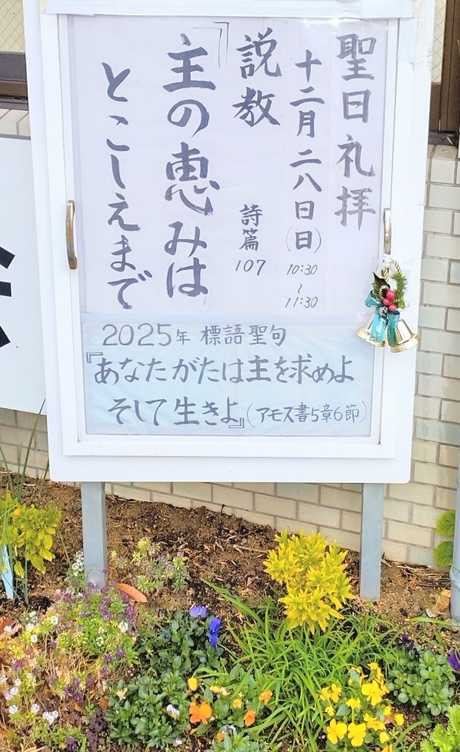 聖日礼拝
十二月二八日(日) 10:30～11:30
説教 詩篇107
「主の恵みは
とこしえまで
2025年 標語聖句
『あなたがたは主を求めよ
そして生きよ』(アモス書5章6節)